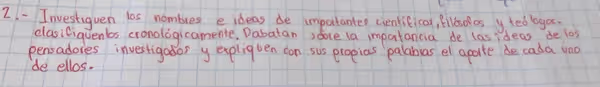 2.- Investiguen los nombres e ideas de importantes científicos, filósofos y teólogos.
clasifiquenlos cronológicamente. Dabatan sobre la importancia de las ideas de los
pensadores investigados y expliquen con sus propias palabras el aporte de cada uno
de ellos.